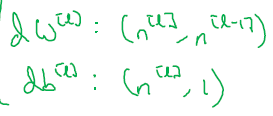 dw^[l] : (n^[l], n^[l-1])
db^[l] : (n^[l], 1)